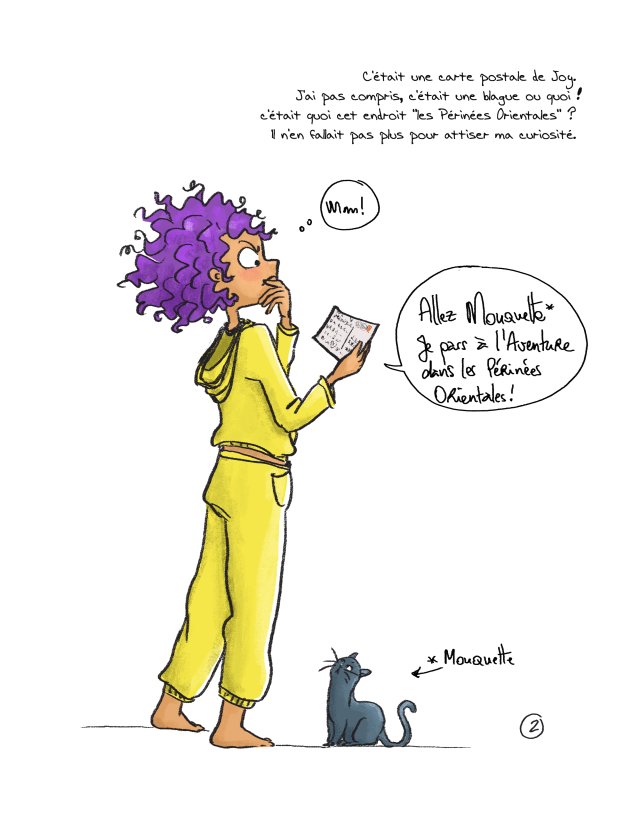 C'était une carte postale de Joy.
J'ai pas compris, c'était une blague ou quoi !
c'était quoi cet endroit "les Périnées Orientales" ?
Il n'en fallait pas plus pour attiser ma curiosité.
Mmm!
Allez Mouquette*
Je pars à l'Aventure
dans les Périnées
Orientales!
* Mouquette
2